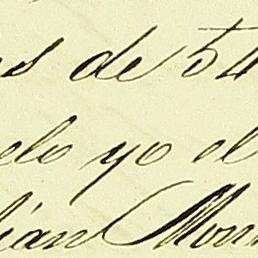 s de 54
elo yo el
lian Mon